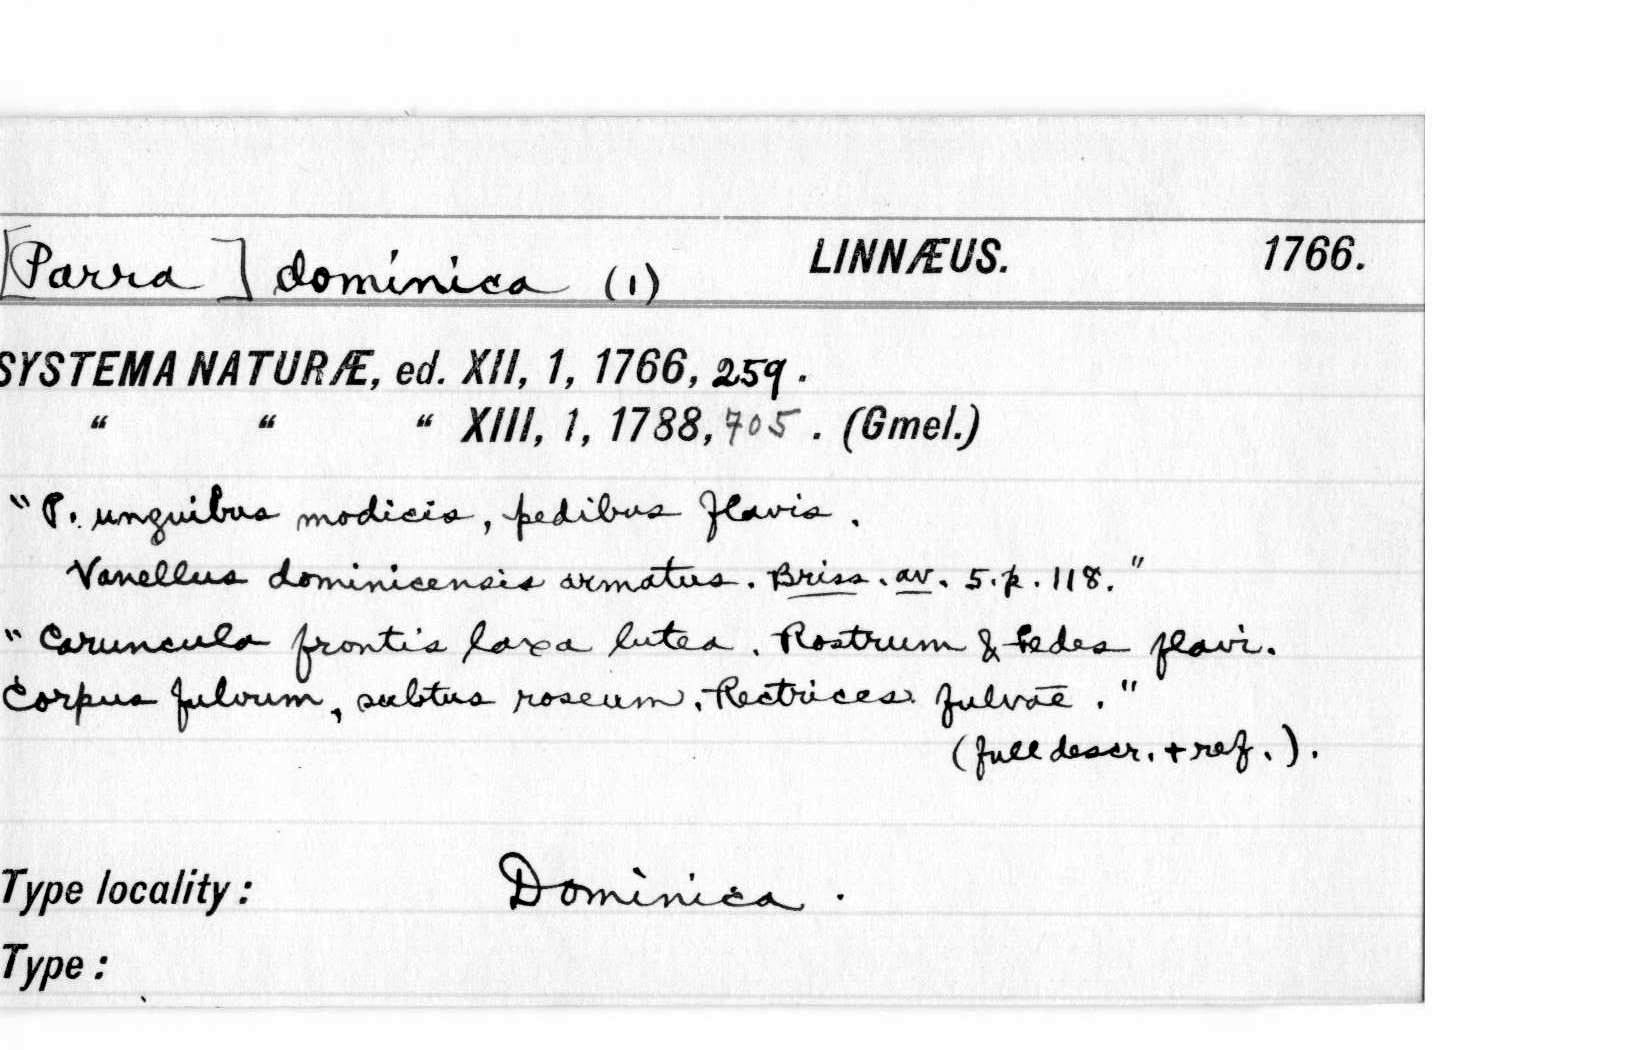 [Parra] dominica (1) LINNÆUS. 1766.
SYSTEMA NATURÆ, ed. XII, 1, 1766, 259.
“ “ “ XIII, 1, 1788, 705. (Gmel.)
"P. unguibus modicis, pedibus flavis.
Vanellus dominicensis armatus. Briss. av. 5. p. 118."
"Caruncula frontis laxa lutea. Rostrum & Pedes flavi.
Corpus fulvum, subtus roseum. Rectrices fulvae."
(full descr. + ref.).
Type locality: Dominica.
Type: